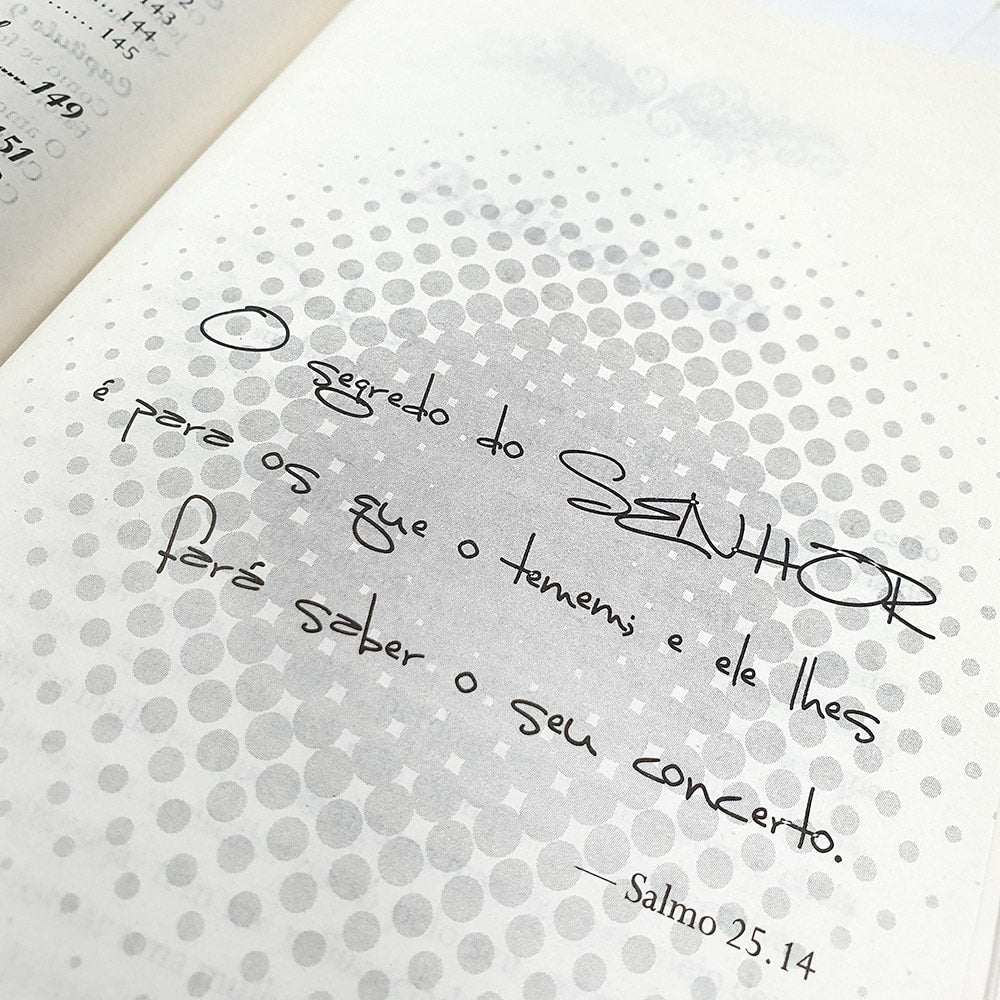 143
144
145
149
151
O segredo do SENHOR
é para os que o temem; e ele lhes
fará saber o seu concerto.
— Salmo 25.14